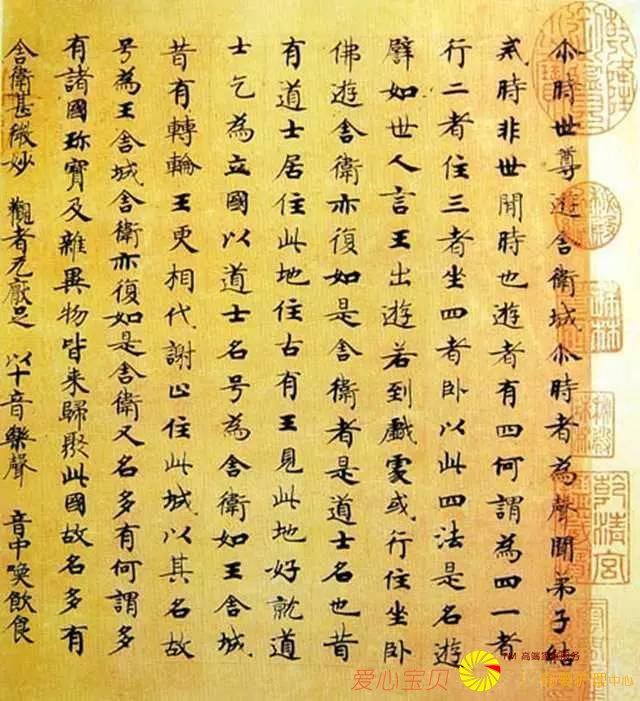 尒時世尊遊舍衛城尒時者為聲聞弟子結
戒時非世間時也遊者有四何謂為四一者
行二者住三者坐四者卧以此四法是名遊
譬如世人言王出遊若到戲處或行住坐卧
佛遊舍衛亦復如是舍衛者是道士名也昔
有道士居住此地住古有王見此地好就道
士乞為立國以道士名号為舍衛如王舍城
昔有轉輪王更相代謝止住此城以其名故
号為王舍城舍衛亦復如是舍衛又名多有何謂多
有諸國珎寶及雜異物皆来歸聚此國故名多有
舍衛甚微妙 觀者无厭足 以十音樂聲 音中喚飲食
乾清宮
爱心宝贝
TM 高端 服务
中心